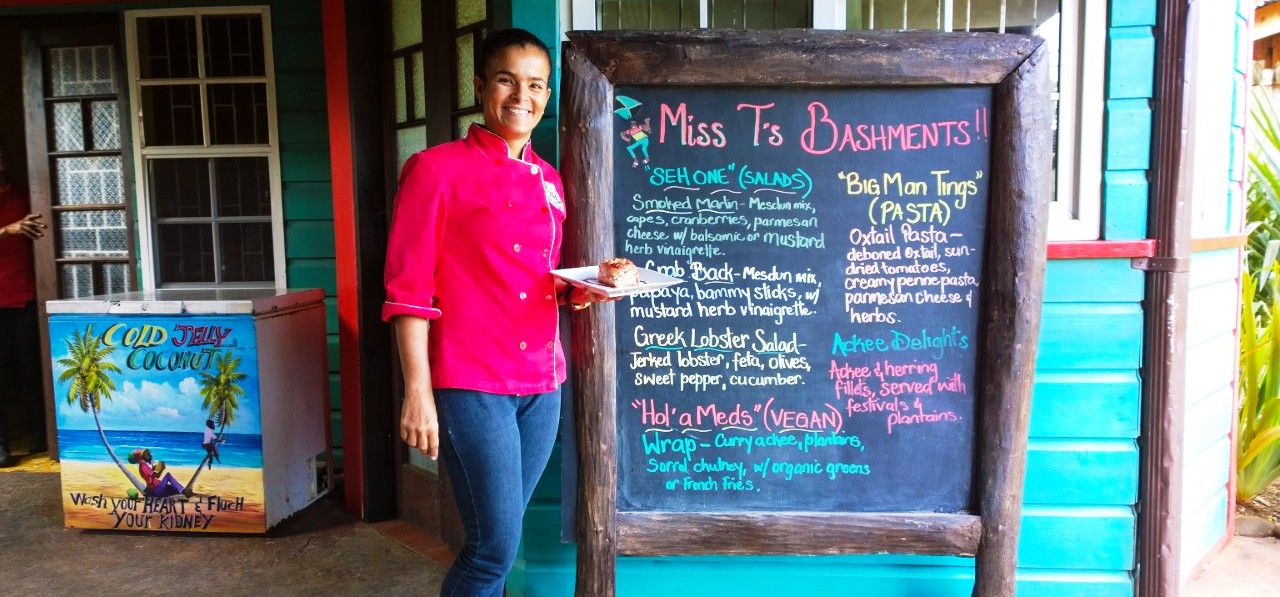 COLD JELLY
COCONUT
Wash your HEART & Fluch
YOUR KIDNEY
Miss T's Bashments!!
"SEH ONE" (SALADS)
Smoked Marlin - Mesclun mix,
capes, cranberries, parmesan
cheese w/ balsamic or mustard
herb vinaigrette.
Crab 'Back - Mesclun mix,
papaya, bammy sticks, w/
mustard herb vinaigrette.
Greek Lobster Salad -
Jerked lobster, feta, olives,
sweet pepper, cucumber.
"Hol'a Meds" (VEGAN)
Wrap - Curry ackee, plantains,
Sorrel chutney, w/ organic greens
or French Fries.
"Big Man Tings"
(PASTA)
Oxtail Pasta -
deboned Oxtail, sun-
dried tomatoes,
creamy penne pasta,
parmesan cheese &
herbs.
Ackee Delights
Ackee & herring
fillets, served with
festivals &
plantains.